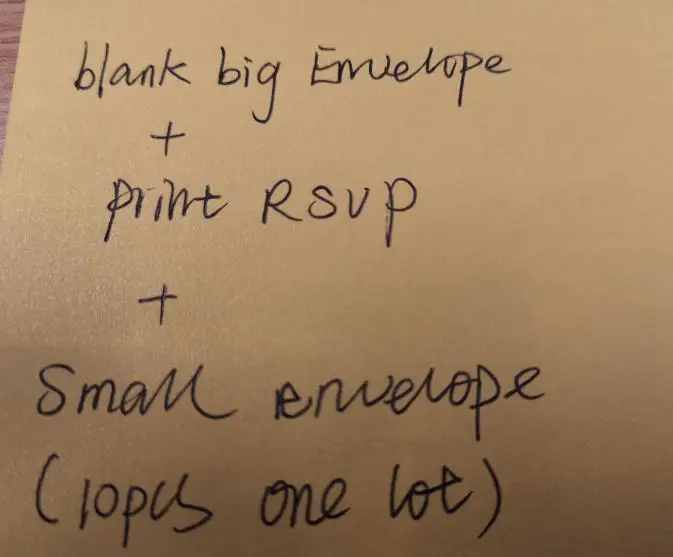 blank big Envelope
+
print RSVP
+
Small envelope
(10pcs one lot)